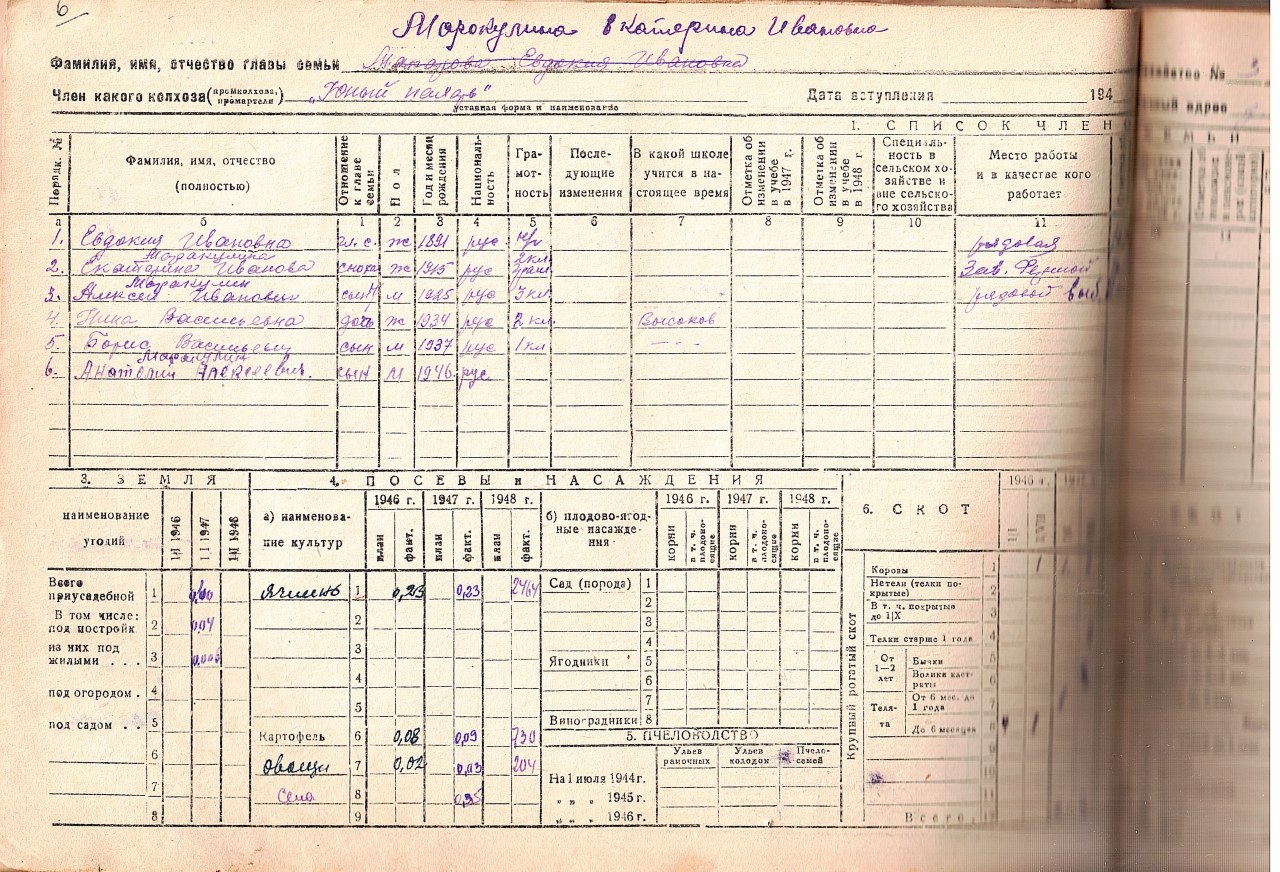 6
Марокулина Екатерина Ивановна
Фамилия, имя, отчество главы семьи Евдокия Ивановна
Член какого колхоза (промколхоза, промартели) „Юный пахарь"
уставная форма и наименование
Дата вступления 194
зяйство № 3
адрес
1. СПИСОК ЧЛЕН
Порядк. № Фамилия, имя, отчество (полностью) Отношение к главе семьи Пол Год и месяц рождения Националь-ность Гра-мот-ность После-дующие изменения В какой школе учится в на-стоящее время Отметка об изменении в учебе в 1947 г. Отметка об изменении в учебе в 1948 г. Специаль-ность в сельском хо-зяйстве и вне сельско-го хозяйства Место работы и в качестве кого работает
а б 1 2 3 4 5 6 7 8 9 10 11
1. Евдокия Ивановна гл. с. ж 1891 рус рядовая
Маракулина 2 кл
2. Екатерина Иванова сноха ж 1915 рус Зав. Фермой
Маракулин
3. Алексей Иванович сын м 1925 рус 3 кл рядовой выб
4. Нина Васильевна дочь ж 1934 рус 2 кл. Высоков
5. Борис Васильевич сын м 1937 рус 1 кл — " —
Маракулин
6. Анатолий Алексеевич. сын м 1946 рус.
3. ЗЕМЛЯ
4. ПОСЕВЫ и НАСАЖДЕНИЯ
наименование угодий 1|I 1946 1|I 1947 1|I 1948
а) наименова-ние культур 1946 г. 1947 г. 1948 г.
план факт. план факт. план факт.
б) плодово-ягод-ные насажде-ния 1946 г. 1947 г. 1948 г.
корни в т. ч. плодоно-сящие корни в т. ч. плодоно-сящие корни в т. ч. плодоно-сящие
6. СКОТ 1946 г.
Всего приусадебной 1
В том числе: под постройк 2 0,04
из них под жилыми . . . 3
под огородом . 4
под садом . . 5
6
7
8
Ячмень 1 0,23 0,23
2
3
4
5
Картофель 6 0,08 0,09 730
Овощи 7 0,02 0,03 204
Сена 8 0,35
9
Сад (порода) 1
2
3
4
Ягодники 5
6
7
Виноградники 8
5. ПЧЕЛОВОДСТВО
Ульев рамочных Ульев колодок Пчело-семей
На 1 июля 1944 г.
„ „ „ 1945 г.
„ „ „ 1946 г.
Крупный рогатый скот
Коровы 1
Нетели (телки по-крытые) 2
В т. ч. покрытые до 1|X 3
Телки старше 1 года 4
От 1—2 лет Бычки 5
Волики каст-раты 6
Теля-та От 6 мес. до 1 года 7
До 6 месяцев 8
Всего